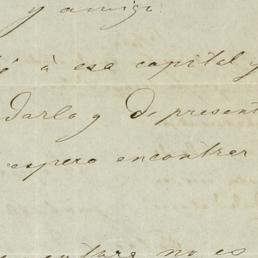 y amigo:
é à esa capital y
darlo y de present
espero encontrar
no es